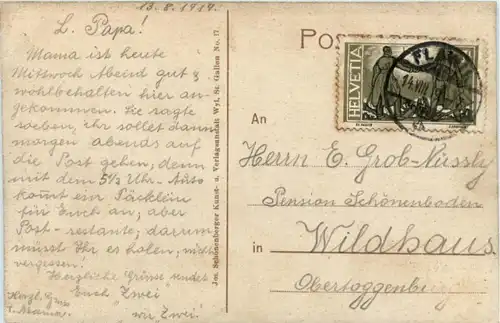 13.8.1919.
L. Papa!
Mama ist heute
Mittwoch Abend gut &
wohlbehalten hier an-
gekommen. Sie sagte
soeben, ihr sollet dann
morgen abends auf
die Post gehen, denn
mit dem 5½ Uhr-Auto
kommt ein Päcklein
für Euch an; aber
Post-restante; darum
müsst Ihr es holen; nicht
vergessen!
Herzliche Grüsse sendet
Euch "Zwei"
"wir Zwei"
Herzl. Gruss
Jos. Schönenberger Kunst- u. Verlagsanstalt Wyl, St. Gallen No. 17.
HELVETIA
FLAWIL
An
Herrn E. Grob-Nüssly
Pension Schönenboden
in Wildhaus
Obertoggenburg